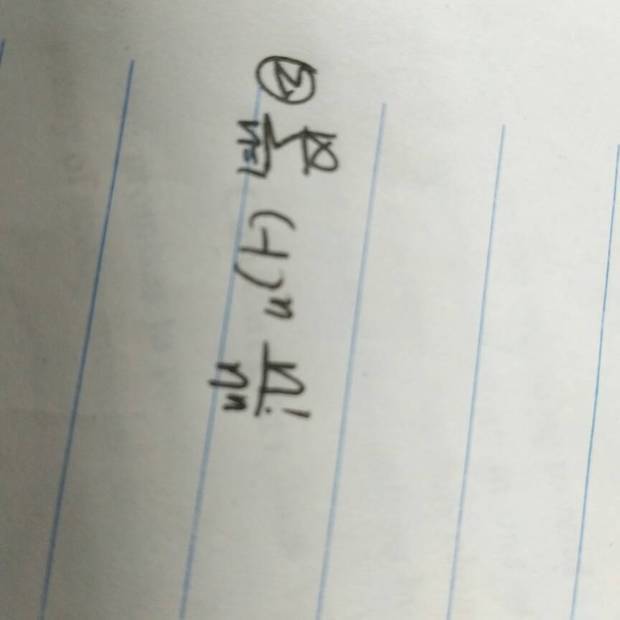 ② ∑_{n=1}^{∞} (-1)^n \frac{n!}{n^n}